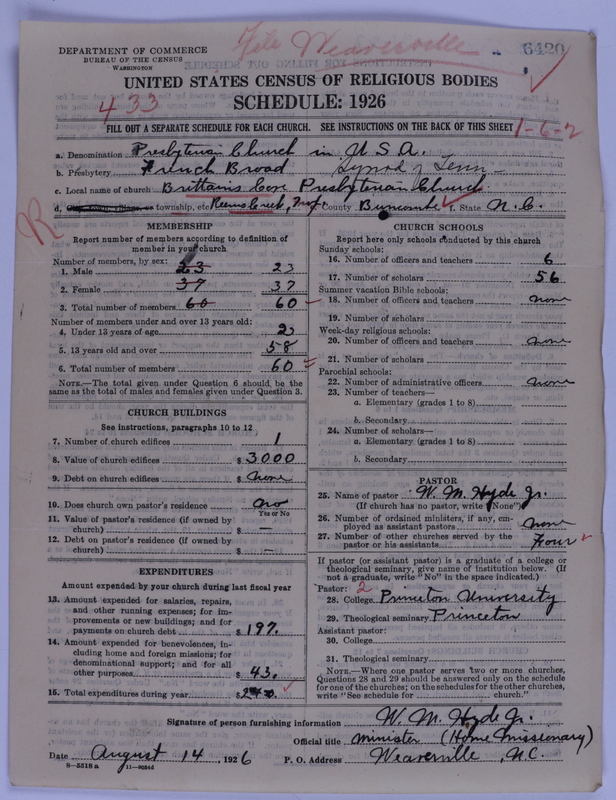 File Weaverville
6420
DEPARTMENT OF COMMERCE
BUREAU OF THE CENSUS
WASHINGTON
UNITED STATES CENSUS OF RELIGIOUS BODIES
SCHEDULE: 1926
433
FILL OUT A SEPARATE SCHEDULE FOR EACH CHURCH. SEE INSTRUCTIONS ON THE BACK OF THIS SHEET
1-6-2
a. Denomination Presbyterian Church in U.S.A.
b. Presbytery French Broad Synod of Tenn
c. Local name of church Brittains Cove Presbyterian Church
d. City, town, village, or township, etc. Reems Creek, e. County Buncombe f. State N.C.
R
MEMBERSHIP
Report number of members according to definition of member in your church
Number of members, by sex:
1. Male 23 23
2. Female 37 37
3. Total number of members 60 60
Number of members under and over 13 years old:
4. Under 13 years of age 2
5. 13 years old and over 58
6. Total number of members 60
NOTE.—The total given under Question 6 should be the same as the total of males and females given under Question 3.
CHURCH BUILDINGS
See instructions, paragraphs 10 to 12
7. Number of church edifices 1
8. Value of church edifices $ 3000
9. Debt on church edifices $ none
10. Does church own pastor's residence no
Yes or No
11. Value of pastor's residence (if owned by church) $ —
12. Debt on pastor's residence (if owned by church) $ —
EXPENDITURES
Amount expended by your church during last fiscal year
13. Amount expended for salaries, repairs, and other running expenses; for improvements or new buildings; and for payments on church debt $ 197.
14. Amount expended for benevolences, including home and foreign missions; for denominational support; and for all other purposes $ 43.
15. Total expenditures during year $ 240.
CHURCH SCHOOLS
Report here only schools conducted by this church
Sunday schools:
16. Number of officers and teachers 6
17. Number of scholars 56
Summer vacation Bible schools:
18. Number of officers and teachers none
19. Number of scholars
Week-day religious schools:
20. Number of officers and teachers none
21. Number of scholars
Parochial schools:
22. Number of administrative officers none
23. Number of teachers—
a. Elementary (grades 1 to 8)
b. Secondary
24. Number of scholars—
a. Elementary (grades 1 to 8)
b. Secondary
PASTOR
25. Name of pastor W. M. Hyde Jr.
(If church has no pastor, write "None")
26. Number of ordained ministers, if any, employed as assistant pastors none
27. Number of other churches served by the pastor or his assistants Four
If pastor (or assistant pastor) is a graduate of a college or theological seminary, give name of institution below. (If not a graduate, write "No" in the space indicated.)
Pastor: 2
28. College Princeton University
29. Theological seminary Princeton
Assistant pastor:
30. College
31. Theological seminary
NOTE.—Where one pastor serves two or more churches, Questions 28 and 29 should be answered only on the schedule for one of the churches; on the schedules for the other churches, write "See schedule for ______ church."
Signature of person furnishing information W. M. Hyde Jr.
Official title minister (Home Missionary)
Date August 14, 1926 P. O. Address Weaverville, N.C.
8-5518 a